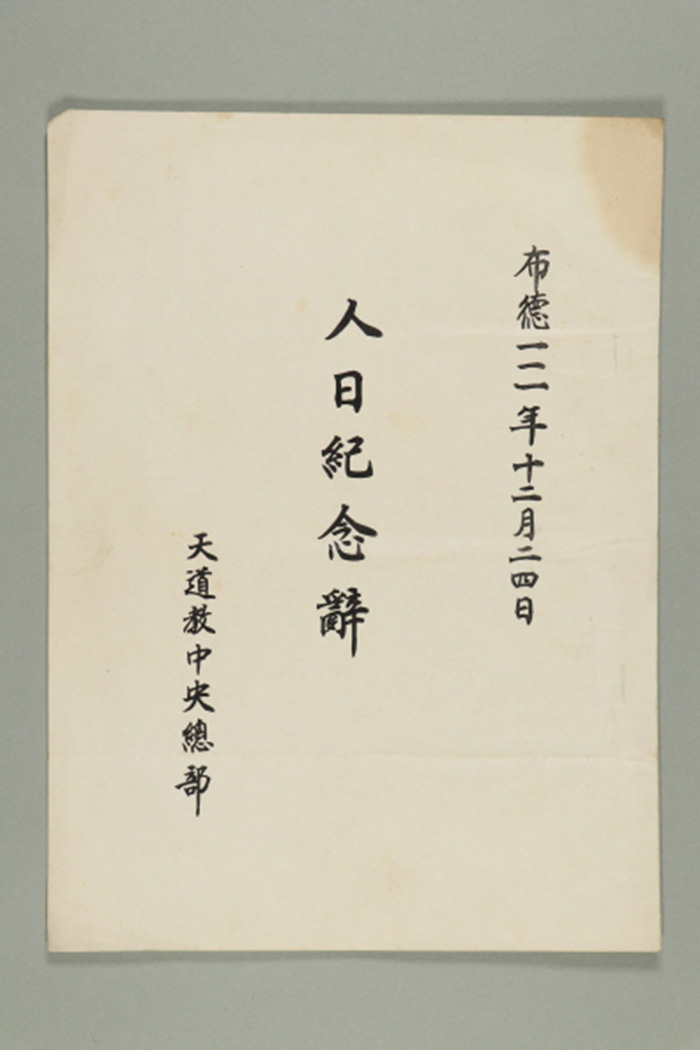 布德一二一年十二月二四日
人日紀念辭
天道教中央總部